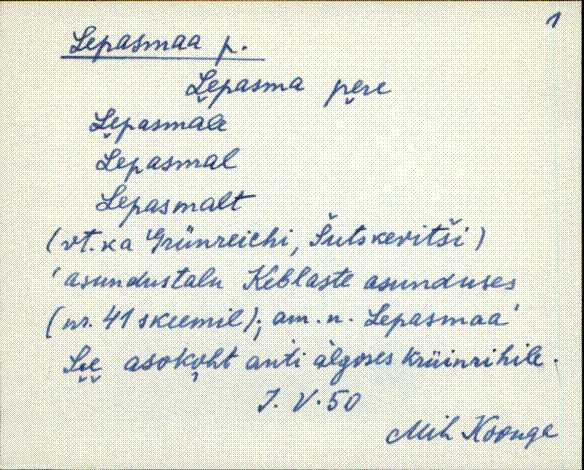 1
Lepasmaa p.
Lẹpasma pẹre
Lẹpasmale
Lẹpasmal
Lẹpasmalt
(vt. ka Grünreichi, Šutskevitši)
'asundustalu Keblaste asunduses
(nr. 41 skeemil); am. n. Lepasmaa'
Sẹẹ asokọht anti algoses krüinrihile.
J. V. 50
Mih Koonga